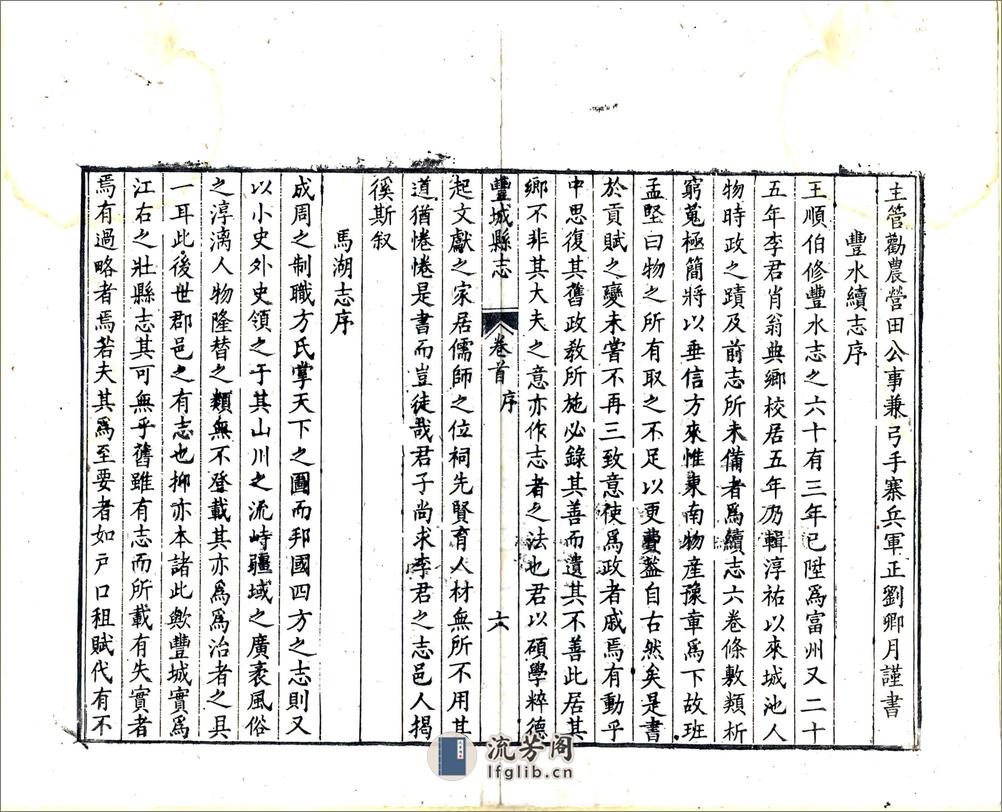 主管勸農營田公事兼弓手寨兵軍正劉卿月謹書
豐水續志序
王順伯修豐水志之六十有三年已陞爲富州又二十
五年李君肖翁典鄉校居五年乃輯淳祐以來城池人
物時政之蹟及前志所未備者爲續志六卷條敷類析
窮蒐極簡將以垂信方來惟東南物産豫章爲下故班
孟堅曰物之所有取之不足以更費盖自右然矣是書
於貢賦之變未嘗不再三致意使爲政者戚焉有動乎
中思復其舊政敎所施必錄其善而遺其不善此居其
鄉不非其大夫之意亦作志者之法也君以碩學粹德
豐城縣志 卷首 序 六
起文獻之家居儒師之位祠先賢育人材無所不用其
道猶惓惓是書而豈徒哉君子尚求李君之志邑人揭
徯斯叙
馬湖志序
成周之制職方氏掌天下之圖而邦國四方之志則又
以小史外史領之于其山川之流峙疆域之廣袤風俗
之淳漓人物隆替之類無不登載其亦爲爲治者之具
一耳此後世郡邑之有志也抑亦本諸此歟豐城實爲
江右之壯縣志其可無乎舊雖有志而所載有失實者
焉有過略者焉若夫其爲至要者如戸口租賦代有不
流芳阁
lfglib.cn